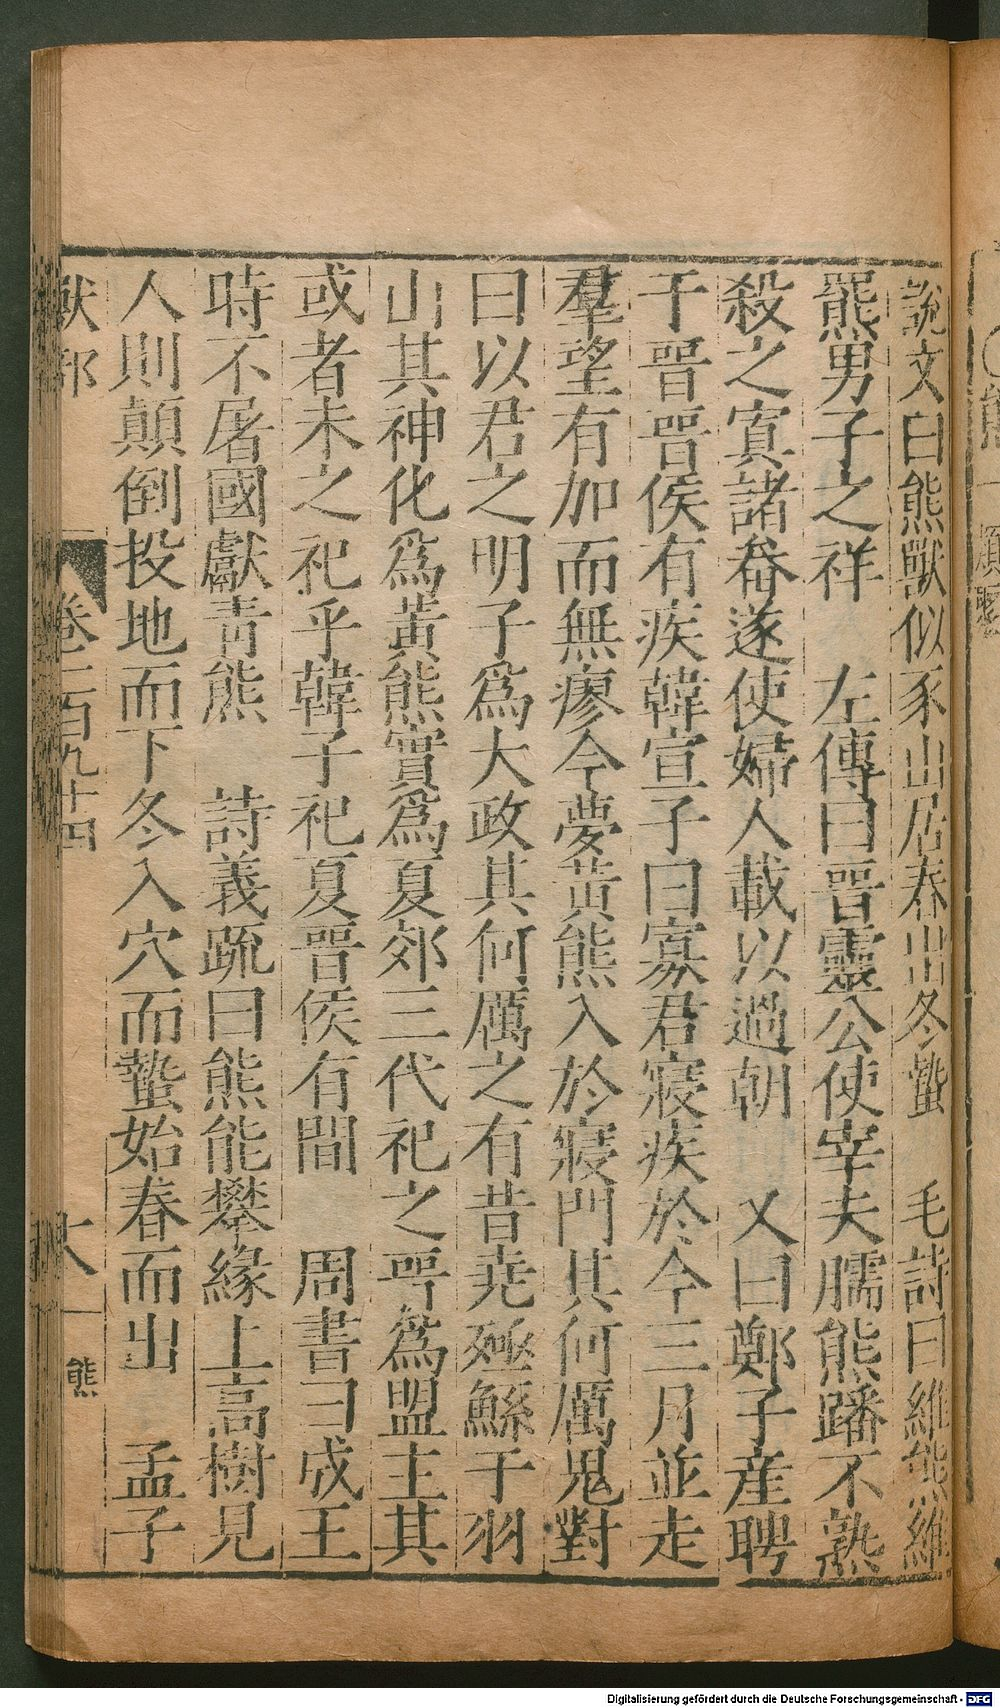 說文曰熊獸似豕山居春出冬蟄　毛詩曰維熊維
羆男子之祥　左傳曰晉靈公使宰夫臑熊蹯不熟
殺之寘諸畚遂使婦人載以過朝　又曰鄭子産聘
于晉晉侯有疾韓宣子曰寡君寢疾於今三月並走
羣望有加而無瘳今夢黃熊入於寢門其何厲鬼對
曰以君之明子爲大政其何厲之有昔堯殛鯀于羽
山其神化爲黃熊實爲夏郊三代祀之晉爲盟主其
或者未之祀乎韓子祀夏晉侯有間　周書曰成王
時不屠國獻青熊　詩義疏曰熊能攀緣上高樹見
人則顛倒投地而下冬入穴而蟄始春而出　孟子
獸部　卷二百九十四　熊
Digitalisierung gefördert durch die Deutsche Forschungsgemeinschaft - DFG